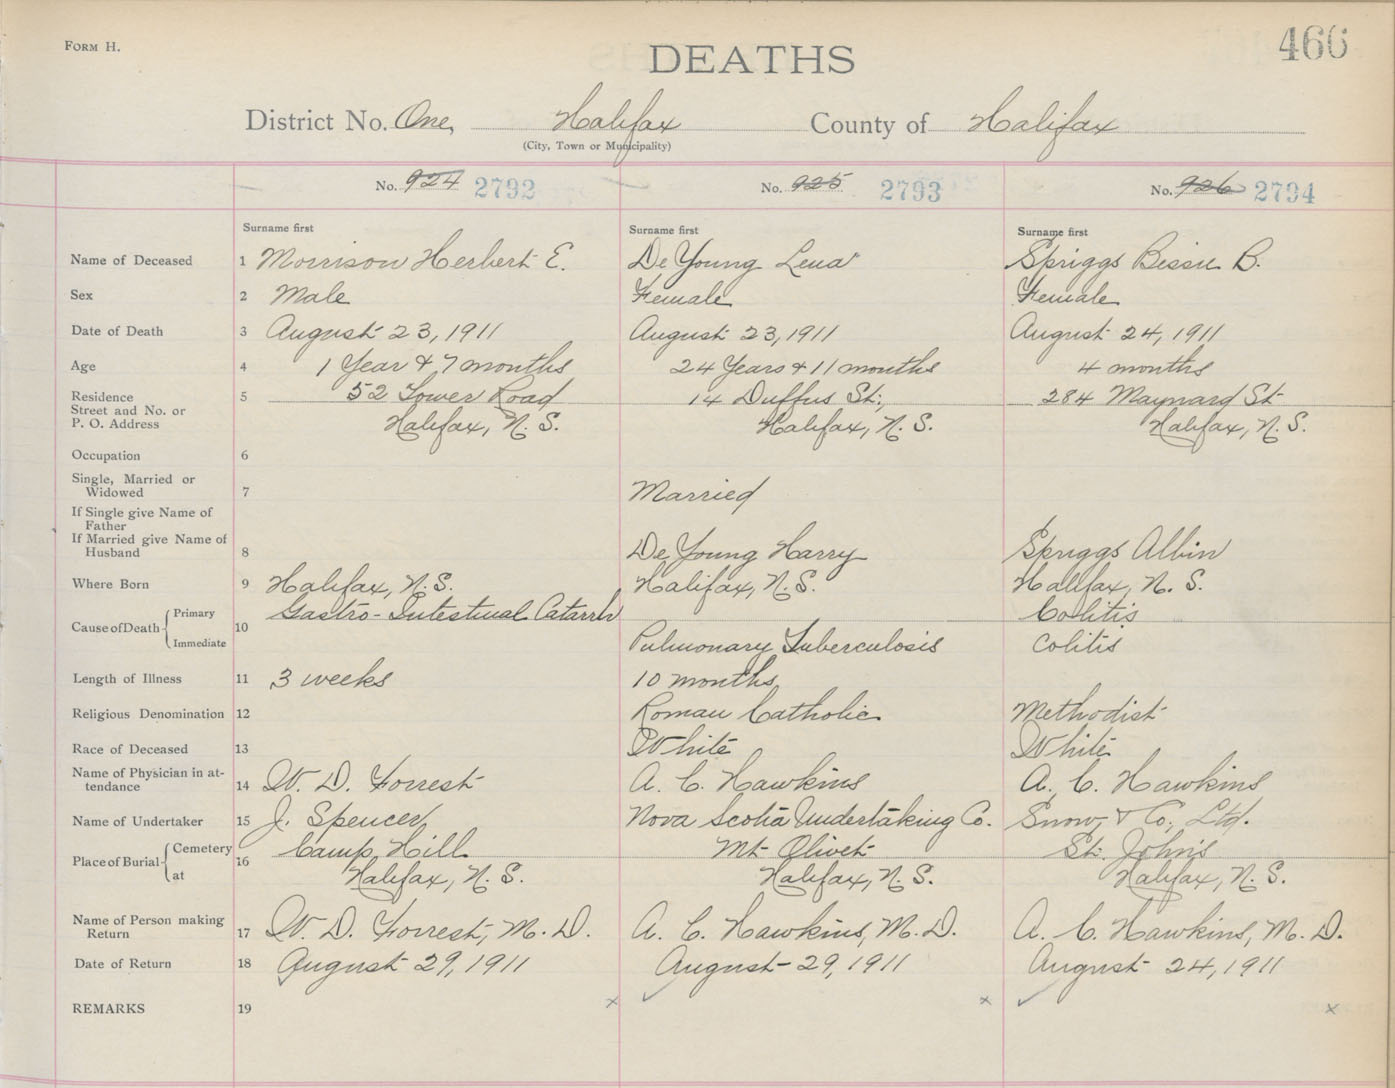 FORM H.
466
DEATHS
District No. One, Halifax County of Halifax
(City, Town or Municipality)
No. 924 2792 No. 925 2793 No. 926 2794
Surname first Surname first Surname first
Name of Deceased 1 Morrison Herbert E. De Young Lena Spriggs Bessie B.
Sex 2 Male Female Female
Date of Death 3 August 23, 1911 August 23, 1911 August 24, 1911
Age 4 1 Year & 7 months 24 Years & 11 months 4 months
Residence 5 52 Tower Road 14 Duffus St., 284 Maynard St
Street and No. or
P. O. Address Halifax, N. S. Halifax, N. S. Halifax, N. S.
Occupation 6
Single, Married or
Widowed 7 Married
If Single give Name of
Father
If Married give Name of
Husband 8 De Young Harry Spriggs Albin
Where Born 9 Halifax, N. S. Halifax, N. S. Halifax, N. S.
Primary Gastro-Intestinal Catarrh Colitis
Cause of Death 10
Immediate Pulmonary Tuberculosis Colitis
Length of Illness 11 3 weeks 10 months
Religious Denomination 12 Roman Catholic Methodist
Race of Deceased 13 White White
Name of Physician in at-
tendance 14 W. D. Forrest A. C. Hawkins A. C. Hawkins
Name of Undertaker 15 J. Spencer Nova Scotia Undertaking Co. Snow & Co., Ltd.
Cemetery Camp Hill Mt Olivet St. John's
Place of Burial 16
at Halifax, N. S. Halifax, N. S. Halifax, N. S.
Name of Person making
Return 17 W. D. Forrest, M. D. A. C. Hawkins, M. D. A. C. Hawkins, M. D.
Date of Return 18 August 29, 1911 August 29, 1911 August 24, 1911
REMARKS 19 x x x